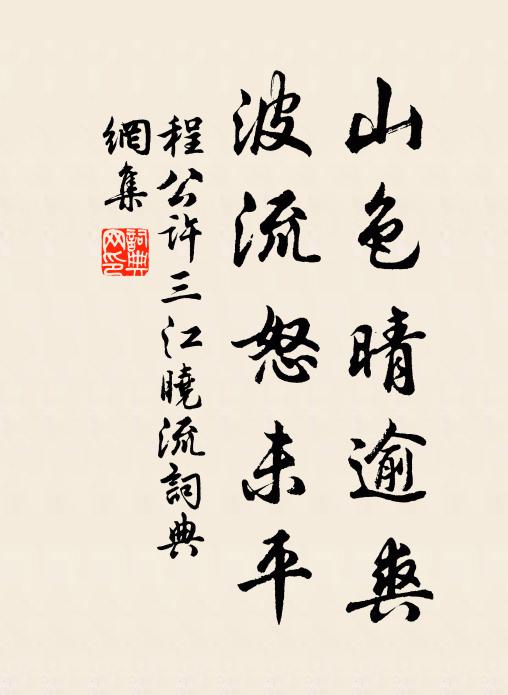 山色晴逾爽
波流怒未平
程公许三江曉流詞典
網集
詞典網印